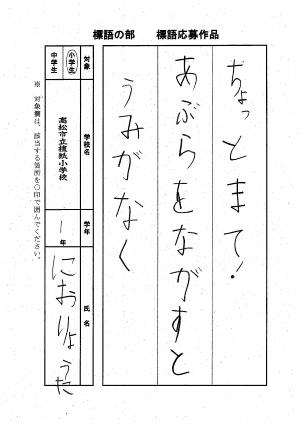 標語の部　標語応募作品
ちょっとまて!
あぶらをながすと
うみがなく
対象
小学生
中学生
学校名
高松市立植紙小学校
学年
1年
氏名
におりょうた
※ 対象欄は、該当する箇所を○印で囲んでください。